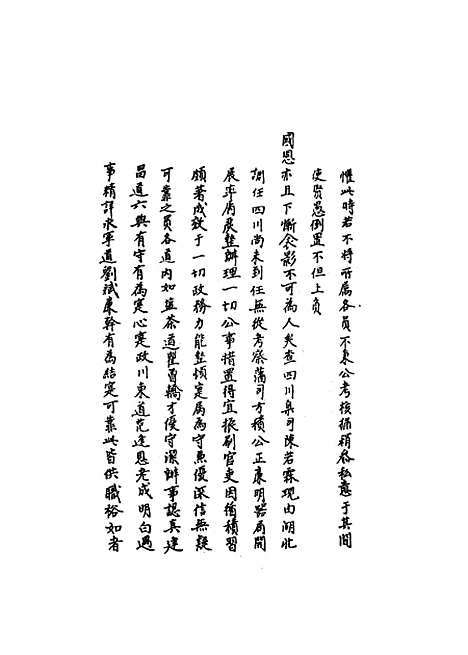 惟此時若不将所属各員不秉公考核稍稍吝私意于其間
使賢愚倒置不但上負
國恩亦且下慚衾影不可為人矣查四川臬司陳若霖現由湖北
調任四川尚未到任無從考察藩司方積公正康明器局開
展率属辰整辦理一切公事措置得宜振刷官吏因循積習
頗著成效于一切政務力能整頓寔属為守兼優深信無疑
可靠之員各道内如鹽茶道瞿曾輯才優守潔辦事認真建
昌道六與有守有為寔心寔政川東道范逢恩老成明白遇
事精詳永寧道劉斌康幹有為結寔可靠此皆供職裕如者